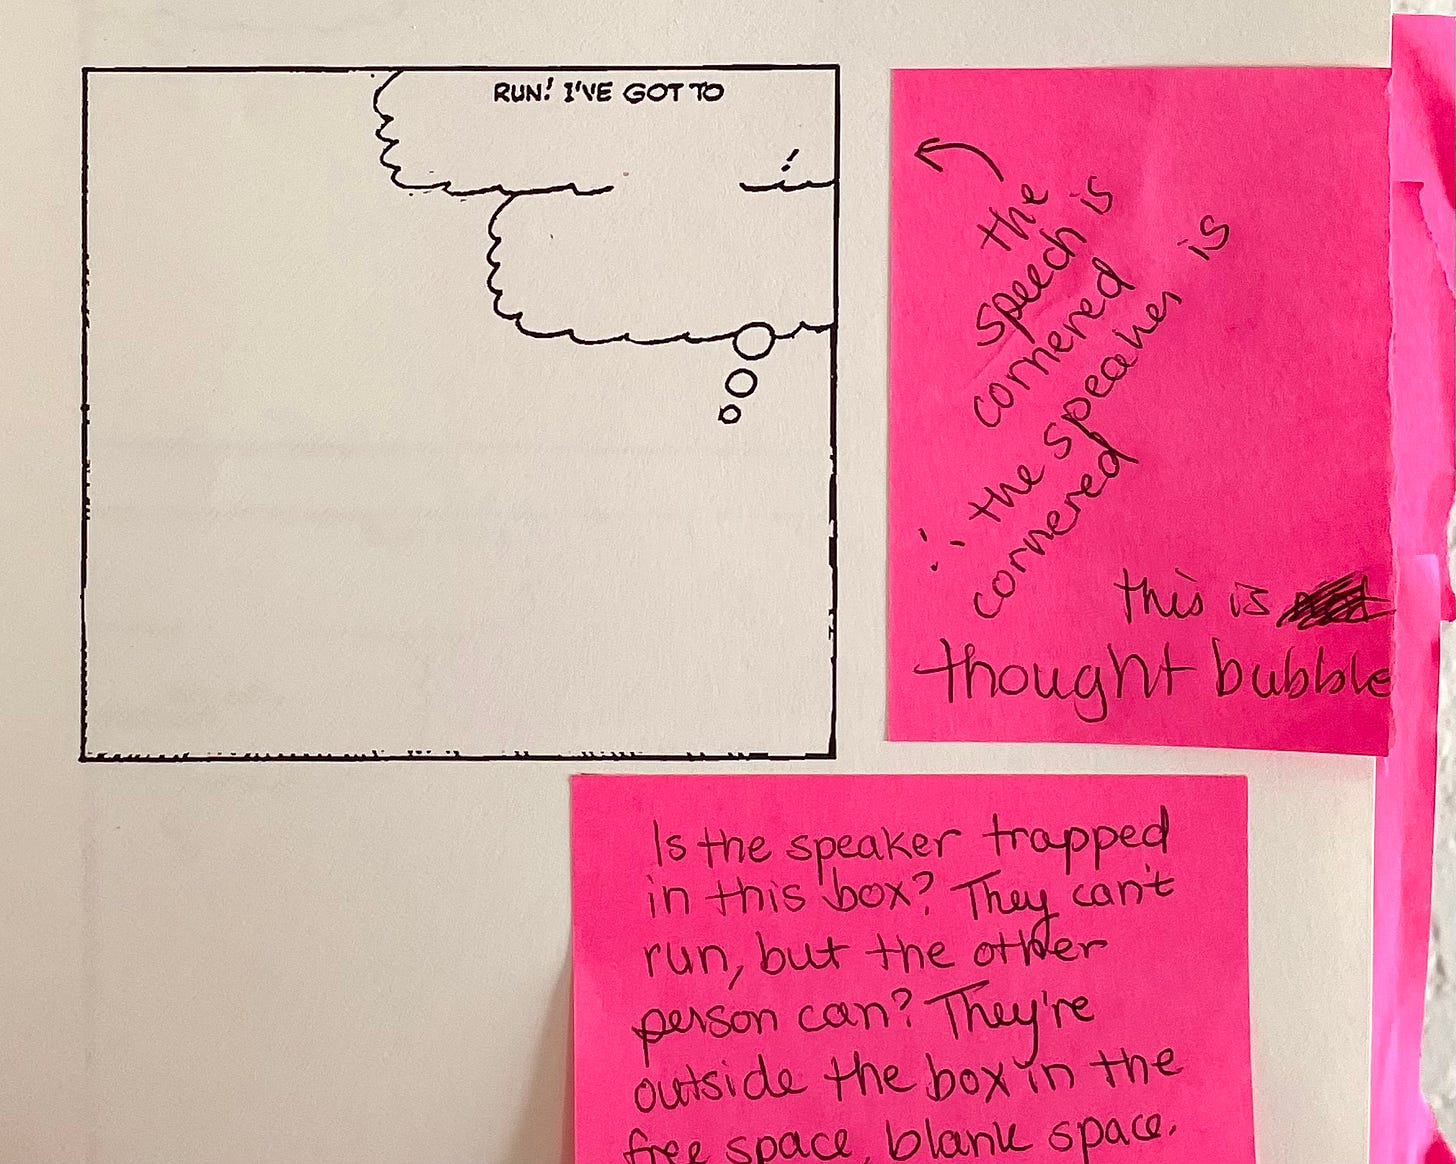 RUN! I'VE GOT TO
!
the
speech is
cornered
∴ the speaker is
cornered
this is
thought bubble
Is the speaker trapped
in this box? They can't
run, but the other
person can? They're
outside the box in the
free space, blank space.